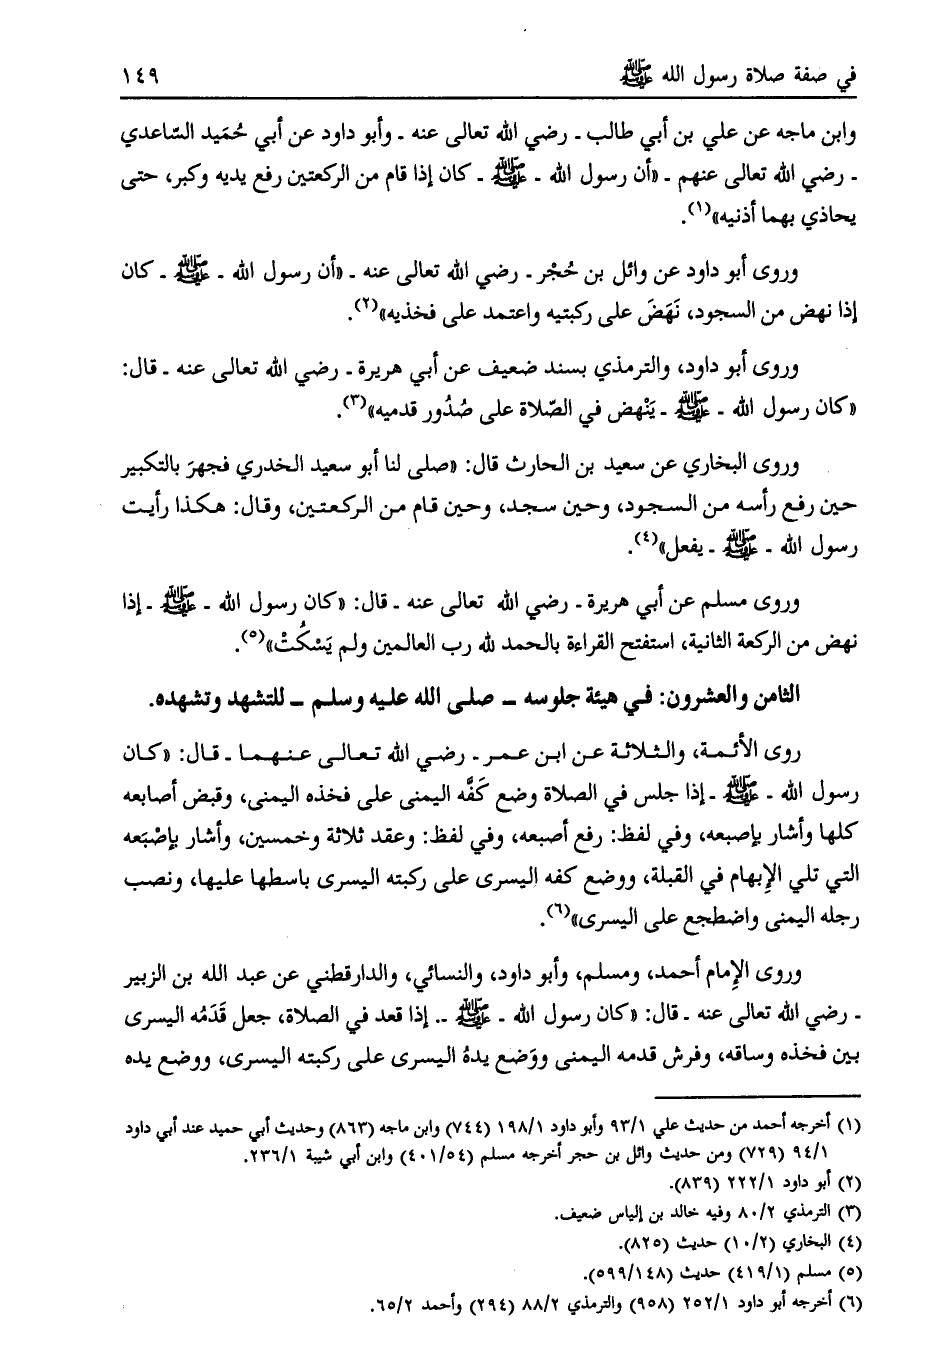 في صفة صلاة رسول الله ﷺ ١٤٩
وابن ماجه عن علي بن أبي طالب ـ رضي الله تعالى عنه ـ وأبو داود عن أبي حُمَيد السّاعدي
ـ رضي الله تعالى عنهم ـ «أن رسول الله ـ ﷺ ـ كان إذا قام من الركعتين رفع يديه وكبر، حتى
يحاذي بهما أذنيه»(١).
وروى أبو داود عن وائل بن حُجْر ـ رضي الله تعالى عنه ـ «أن رسول الله ـ ﷺ ـ كان
إذا نهض من السجود، نَهَضَ على ركبتيه واعتمد على فخذيه»(٢).
وروى أبو داود، والترمذي بسند ضعيف عن أبي هريرة ـ رضي الله تعالى عنه ـ قال:
«كان رسول الله ـ ﷺ ـ يَنْهض في الصّلاة على صُدُور قدميه»(٣).
وروى البخاري عن سعيد بن الحارث قال: «صلى لنا أبو سعيد الخدري فجهرَ بالتكبير
حين رفع رأسه من السجود، وحين سجد، وحين قام من الركعتين، وقال: هكذا رأيت
رسول الله ـ ﷺ ـ يفعل»(٤).
وروى مسلم عن أبي هريرة ـ رضي الله تعالى عنه ـ قال: «كان رسول الله ـ ﷺ ـ إذا
نهض من الركعة الثانية، استفتح القراءة بالحمد لله رب العالمين ولم يَسْكُتْ»(٥).
الثامن والعشرون: في هيئة جلوسه ـ صلى الله عليه وسلم ـ للتشهد وتشهده.
روى الأئمة، والثلاثة عن ابن عمر ـ رضي الله تعالى عنهما ـ قال: «كان
رسول الله ـ ﷺ ـ إذا جلس في الصلاة وضع كَفَّه اليمنى على فخذه اليمنى، وقبض أصابعه
كلها وأشار بإصبعه، وفي لفظ: رفع أصبعه، وفي لفظ: وعقد ثلاثة وخمسين، وأشار بإصْبَعه
التي تلي الإبهام في القبلة، ووضع كفه اليسرى على ركبته اليسرى باسطها عليها، ونصب
رجله اليمنى واضطجع على اليسرى»(٦).
وروى الإمام أحمد، ومسلم، وأبو داود، والنسائي، والدارقطني عن عبد الله بن الزبير
ـ رضي الله تعالى عنه ـ قال: «كان رسول الله ـ ﷺ ـ. إذا قعد في الصلاة، جعل قَدَمُه اليسرى
بين فخذه وساقه، وفرش قدمه اليمنى ووَضع يدهُ اليسرى على ركبته اليسرى، ووضع يده
(١) أخرجه أحمد من حديث علي ٩٣/١ وأبو داود ١٩٨/١ (٧٤٤) وابن ماجه (٨٦٣) وحديث أبي حميد عند أبي داود
٩٤/١ (٧٢٩) ومن حديث وائل بن حجر أخرجه مسلم (٤٠١/٥٤) وابن أبي شيبة ٢٣٦/١.
(٢) أبو داود ٢٢٢/١ (٨٣٩).
(٣) الترمذي ٨٠/٢ وفيه خالد بن إلياس ضعيف.
(٤) البخاري (١٠/٢) حديث (٨٢٥).
(٥) مسلم (٤١٩/١) حديث (٥٩٩/١٤٨).
(٦) أخرجه أبو داود ٢٥٢/١ (٩٥٨) والترمذي ٨٨/٢ (٢٩٤) وأحمد ٦٥/٢.